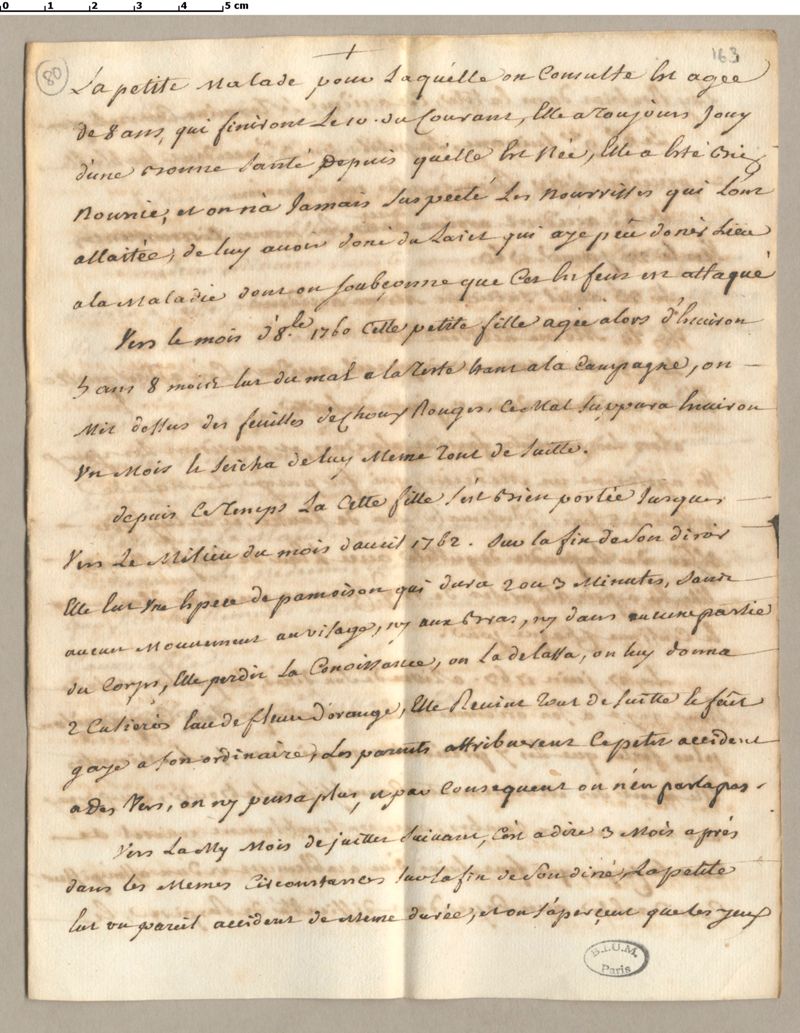 0 1 2 3 4 5 cm
80
163
La petite Malade pour Laquelle on Consulte Est agée
de 8 ans, qui finiront Le 10. du Courant, Elle a Toujours Jouy
d'une bonne Santé Depuis qu'elle Est Née, Elle a Esté bien
Nourrie, et on n'a Jamais Suspecté Les Nourrisses qui L'ont
allaitée, de luy avoir doné du Laict qui aye peu doner Lieu
a la Maladie dont on Soubçonne que Cet Enfent est attaqué
Vers le mois d'8.bre 1760 Cette petite fille agée alors d'Environ
5 ans 8 mois Eut du mal a la Teste Etant a la Campagne, on
Mit dessus des feuilles de Choux Rouges. Ce Mal Suppura Environ
Un Mois Et Seicha de luy Meme Tout de Suitte.
depuis Ce Temps La Cette fille S'est bien portée Jusques
Vers Le Milieu du mois d'avril 1762. Sur la fin de Son diner
Elle Eut Une Espece de pamoison qui dura 2 ou 3 Minutes, Sans
aucun Mouvement au visage, ny aux bras, ny dans aucune partie
du Corps, Elle perdit La Conoissance, on La delassa, on luy donna
2 Culierés Eau de fleur d'orange, Elle Revint Tout de Suitte Et feut
gaye a Son ordinaire, Les parents attribuerent Ce petit accident
a Des Vers, on n'y pensa plus, et par Consequent on n'en parla pas.
Vers La My Mois de juillet Suivant, C'est a dire 3 Mois aprés
dans les Memes Circonstances Sur la fin de Son diné, La petite
Eut un pareil accident de Meme durée, et on S'aperçeut que les yeux
B.I.U.M.
Paris